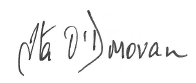 Ita O'Donovan